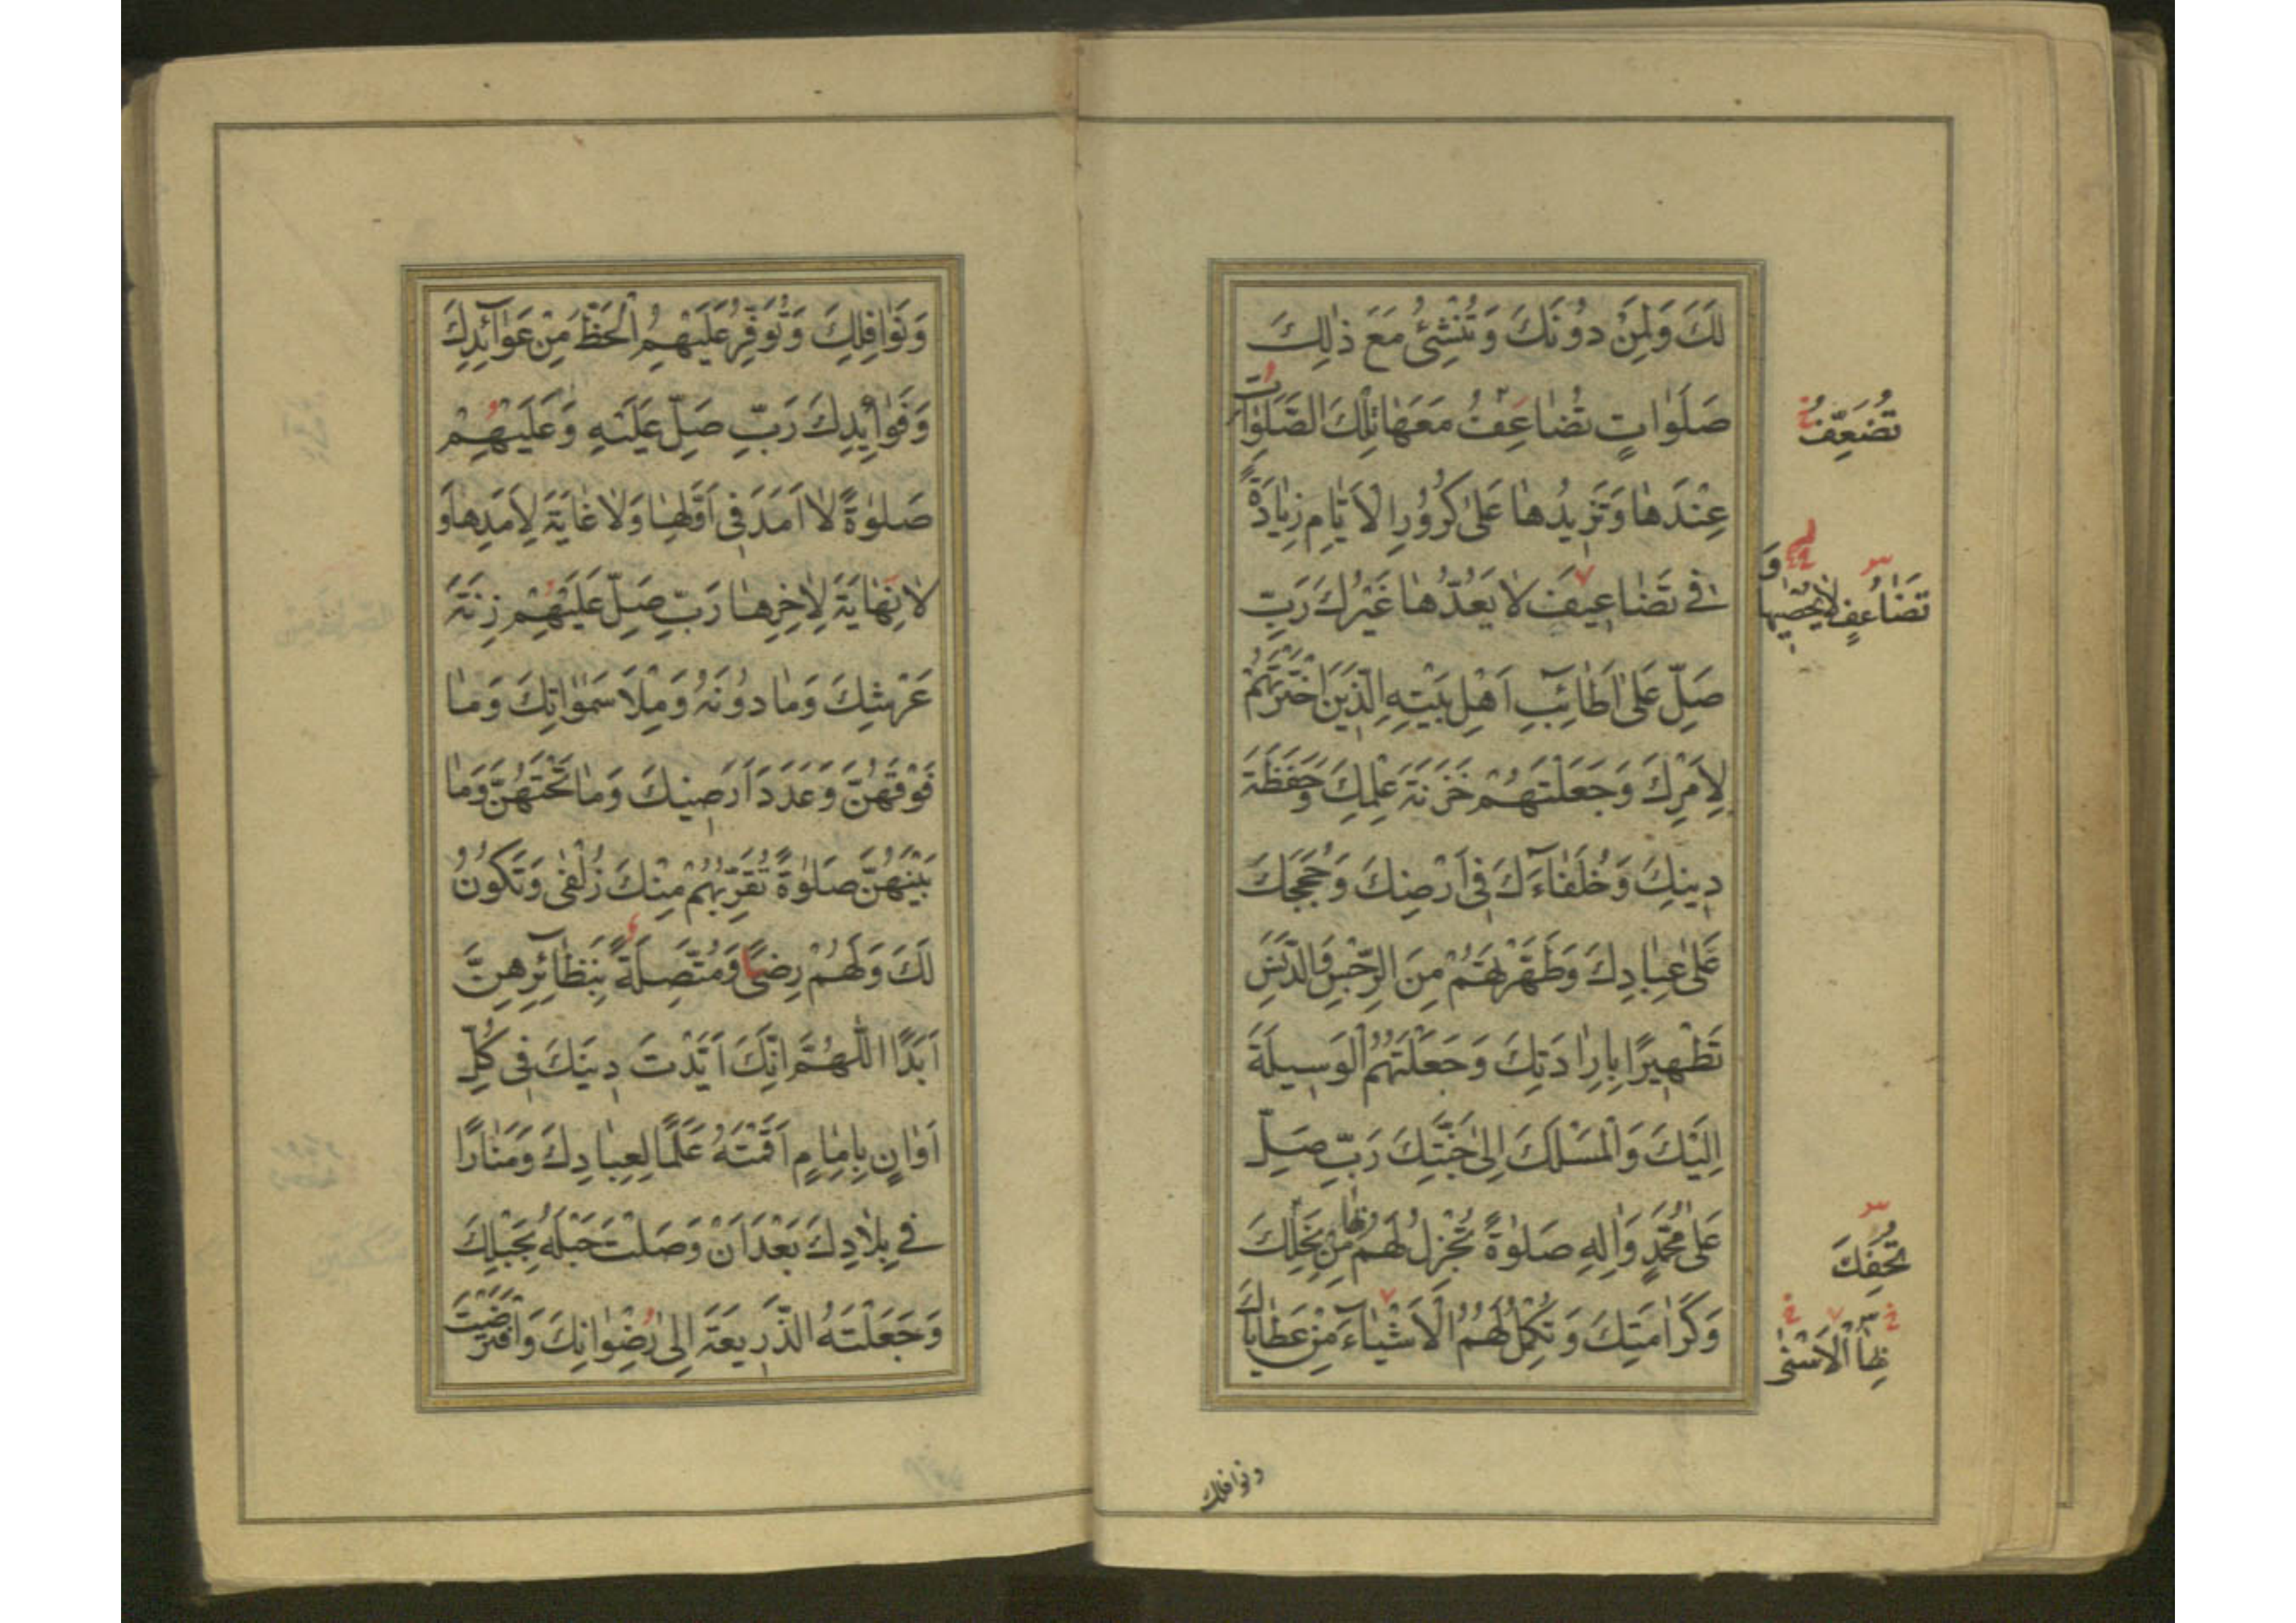 لَكَ وَلِمَنْ دُونَكَ وَتُنْشِئُ مَعَ ذٰلِكَ
صَلَوٰاتٍ تُضٰاعِفُ مَعَهٰا تِلْكَ الصَّلَوٰاتِ
تُضَعِّفُ
عِنْدَهٰا وَتَزِيدُهٰا عَلىٰ كُرُورِ الْاَيّٰامِ زِيٰادَةً
فِي تَضٰاعِيفَ لٰا يَعُدُّهٰا غَيْرُكَ رَبِّ
تَضٰاعُفٍ لٰا يُحْصِيهٰا وَ
صَلِّ عَلىٰ اَطٰائِبِ اَهْلِ بَيْتِهِ الَّذِينَ اخْتَرْتَهُمْ
لِاَمْرِكَ وَجَعَلْتَهُمْ خَزَنَةَ عِلْمِكَ وَحَفَظَةَ
دِينِكَ وَخُلَفٰاءَكَ فِي اَرْضِكَ وَحُجَجَكَ
عَلىٰ عِبٰادِكَ وَطَهَّرْتَهُمْ مِنَ الرِّجْسِ وَالدَّنَسِ
تَطْهِيرًا بِاِرٰادَتِكَ وَجَعَلْتَهُمُ الْوَسِيلَةَ
اِلَيْكَ وَالْمَسْلَكَ اِلىٰ جَنَّتِكَ رَبِّ صَلِّ
عَلىٰ مُحَمَّدٍ وَاٰلِهِ صَلوٰةً تُجْزِلُ لَهُمْ بِهٰا مِنْ نِحَلِكَ
تُحَفِكَ
وَكَرٰامَتِكَ وَتُكْمِلُ لَهُمُ الْاَشْيٰاءَ مِنْ عَطٰايٰاكَ
بِهَا الْاَسْنىٰ
ونوافلك
وَنَوٰافِلِكَ وَتُوَفِّرُ عَلَيْهِمُ الْحَظَّ مِنْ عَوٰائِدِكَ
وَفَوٰائِدِكَ رَبِّ صَلِّ عَلَيْهِ وَعَلَيْهِمْ
صَلوٰةً لٰا اَمَدَ فِي اَوَّلِهٰا وَلٰا غٰايَةَ لِاَمَدِهٰا وَ
لٰا نِهٰايَةَ لِاٰخِرِهٰا رَبِّ صَلِّ عَلَيْهِمْ زِنَةَ
عَرْشِكَ وَمٰا دُونَهُ وَمِلْأَ سَمٰوٰاتِكَ وَمٰا
فَوْقَهُنَّ وَعَدَدَ اَرَضِيكَ وَمٰا تَحْتَهُنَّ وَمٰا
بَيْنَهُنَّ صَلوٰةً تُقَرِّبُهُمْ مِنْكَ زُلْفىٰ وَتَكُونُ
لَكَ وَلَهُمْ رِضًى وَمُتَّصِلَةً بِنَظٰائِرِهِنَّ
اَبَدًا اللّٰهُمَّ اِنَّكَ اَيَّدْتَ دِينَكَ فِي كُلِّ
اَوٰانٍ بِاِمٰامٍ اَقَمْتَهُ عَلَمًا لِعِبٰادِكَ وَمَنٰارًا
فِي بِلٰادِكَ بَعْدَ اَنْ وَصَلْتَ حَبْلَهُ بِحَبْلِكَ
وَجَعَلْتَهُ الذَّرِيعَةَ اِلىٰ رِضْوٰانِكَ وَافْتَرَضْتَ